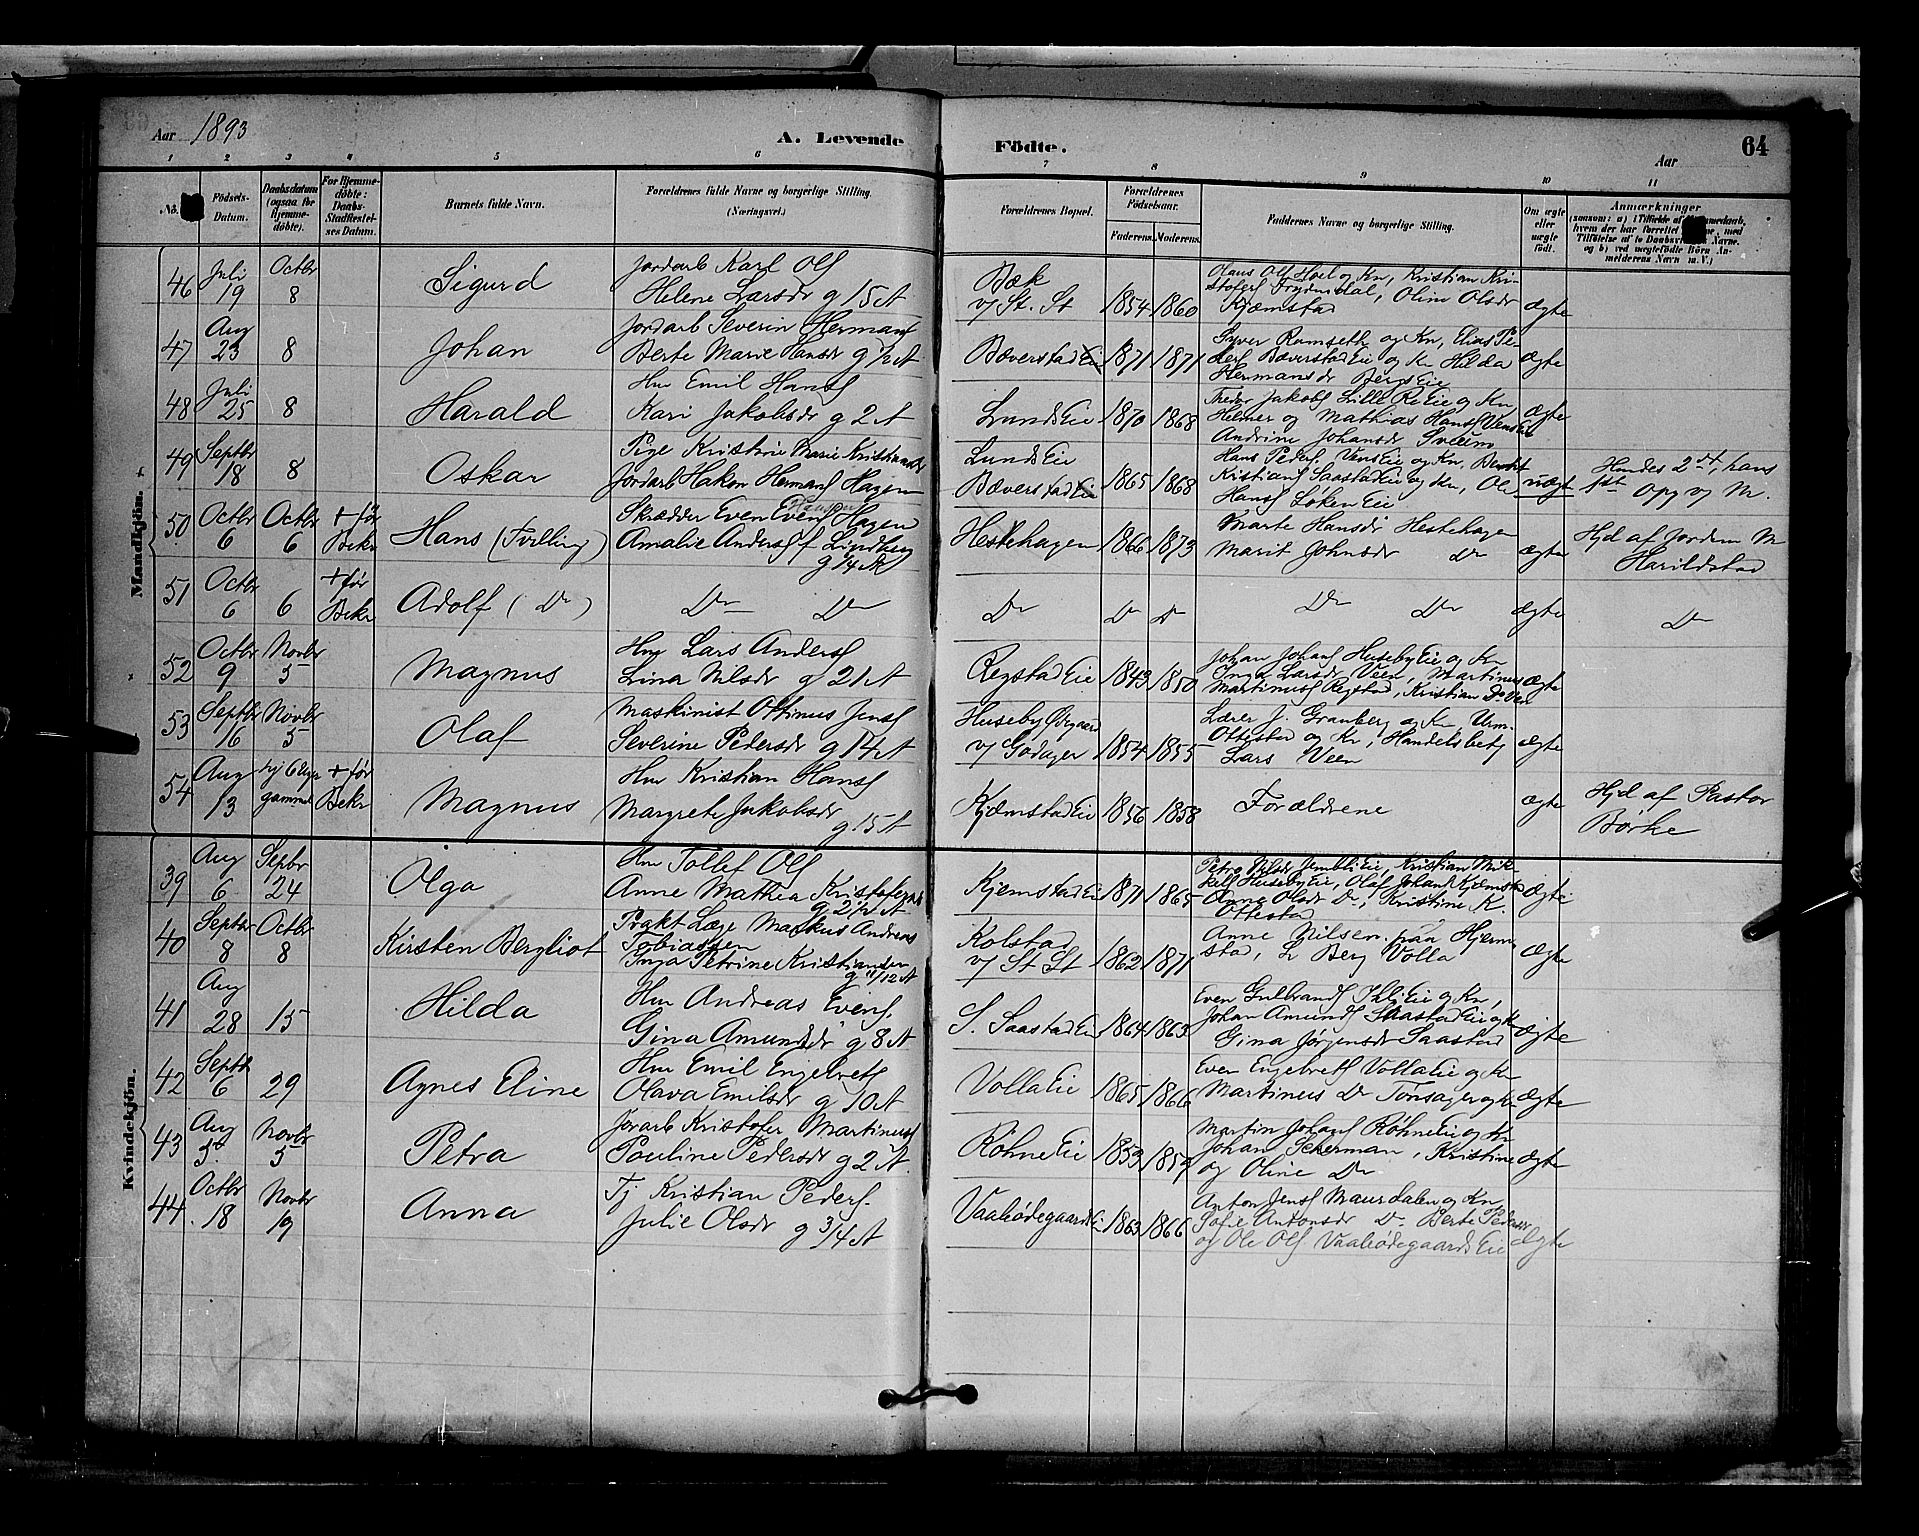 Aar 1893
A. Levende Födte.
Aar 64
1 2 3 4 5 6 7 8 9 10 11
No.
Födsels-
Datum.
Daabsdatum
(ogsaa for
Hjemme-
döbte).
For Hjemme-
döbte:
Daabs-
Stadfæstel-
ses Datum.
Barnets fulde Navn.
Forældrenes fulde Navne og borgerlige Stilling.
(Næringsvei.)
Forældrenes Bopæl.
Forældrenes
Födselsaar.
Faderens. Moderens.
Faddernes Navne og borgerlige Stilling.
Om ægte
eller
uægte
födt.
Anmærkninger
Mandkjön.
46 Juli 19 Octbr 8
Sigurd
Jordarb Karl Ols
Helene Larsdr g 15 A
Bæk
v/ St. St
1854 1860
Hans Ols Hoel og Kn, Kristian Kri-
stofers Frydendal, Oline Olsdr
Kjemstad
ægte
47 Aug 23 8
Johan
Jordarb Severin Hermans
Berte Marie Hansdr g ½ A
BæverstadEie
1871 1871
Syver Ramseth og Kn, Elias Pe-
ders BæverstadEie og K Hilda
Hermansdr BergsEie
ægte
48 Juli 25 8
Harald
Hm Emil Hans
Kari Jakobsdr g 2 A
LundsEie
1870 1868
Jakobs Lille ReEie og Kn
Helmer og Mathias Hans
Andrine Johansdr
ægte
49 Septbr 18 8
Oskar
Pige Kristine Marie Kristiansdr
Jordarb Hakon Hermans Hagen
LundsEie
BæverstadEie
1865 1868
Hans Peders VensEie og Kn, Berthe
Kristians SaastadEie og Kn, Ole
Hans LokenEie
uægt
Hendes 2det, hans
1ste Opg v/ M.
50 Octbr 6 Octbr 6 + før Bekr
Hans (Tvilling)
Skrædder Even Evens Hagen
Amalie Anders Lindberg
g 14 M
Hestehagen
1866 1873
Marte Hansdr Hestehagen
Marit Johnsdr Do
ægte
Hjd af Jordem M
Harildstad
51 Octbr 6 6 + før Bekr
Adolf (Do)
Do Do
Do
Do Do
Do Do
ægte
Do
52 Octbr 9 Novbr 5
Magnus
Hm Lars Anders
Lina Nilsdr g 21 A
RegstadEie
1843 1850
Johan Johans HusebyEie og Kn
Inga Larsdr Veen, Martinus
Martinus Regstad, Kristian Do Veen
ægte
53 Septbr 16 Novbr 5
Olaf
Maskinist Ottinus Jens
Severine Pedersdr g 14 A
Huseby Øvrgaard
v/ Godager
1854 1855
Lærer J. Granberg og Kn, Urm.
Ottestad og Kn, Handelsbetj
Lars Veen
ægte
54 Aug 13 gammel + før Bekr
Magnus
Hm Kristian Hans
Margrete Jakobsdr
g 15 A
KjemstadEie
1856 1858
Forældrene
ægte
Hjd af Pastor
Børke
Kvindekjön.
39 Aug 6 Septbr 24
Olga
Hm Tollef Ols
Anne Mathea Kristofersdr
g 2½ A
KjemstadEie
1871 1865
Petra Nilsdr JembliEie, Kristian Mik-
kels HusebyEie, Olaf Johans Kjemstad
Anne Olsdr Do, Kristine K.
Ottestad
ægte
40 Septbr 8 Octbr 8
Kirsten Bergliot
Prakt Læge Markus Andreas
Tobiassen
Inga Petrine Kristiansen
g 11/12 A
Kolstad
v/ St St
1862 1871
Anne Nilsen paa Hjerm
stad, L Berg Volla
ægte
41 Aug 28 15
Hilda
Hm Andreas Evens
Gina Amundsdr g 8 A
S. SaastadEie
1864 1863
Even Gulbrands IhleEie og Kn,
Johan Amunds SaastadEie og K
Gina Jørgensdr Saastad
ægte
42 Septbr 6 29
Agnes Eline
Hm Emil Engebrets
Olava Emilsdr g 10 A
VollaEie
1865 1866
Even Engebrets VollaEie og K
Martinus Do Tønsager og K
ægte
43 Aug 5 Novbr 5
Petra
Jorarb Kristofer Martinus
Pauline Pedersdr g 2 A
RöhneEie
1853 1859
Martin Johans RöhneEie og K
Johan Sekerman, Kristine
og Oline Do
ægte
44 Octbr 18 Novbr 19
Anna
Tj Kristian Peders
Julie Olsdr g 3/4 A
VaaleödegaardsEie
1863 1866
Anton Jens Maursdalen og Kn
Sofie Antonsdr Do Berte Pedersdr
og Ole Ols VaaleödegaardsEie
ægte